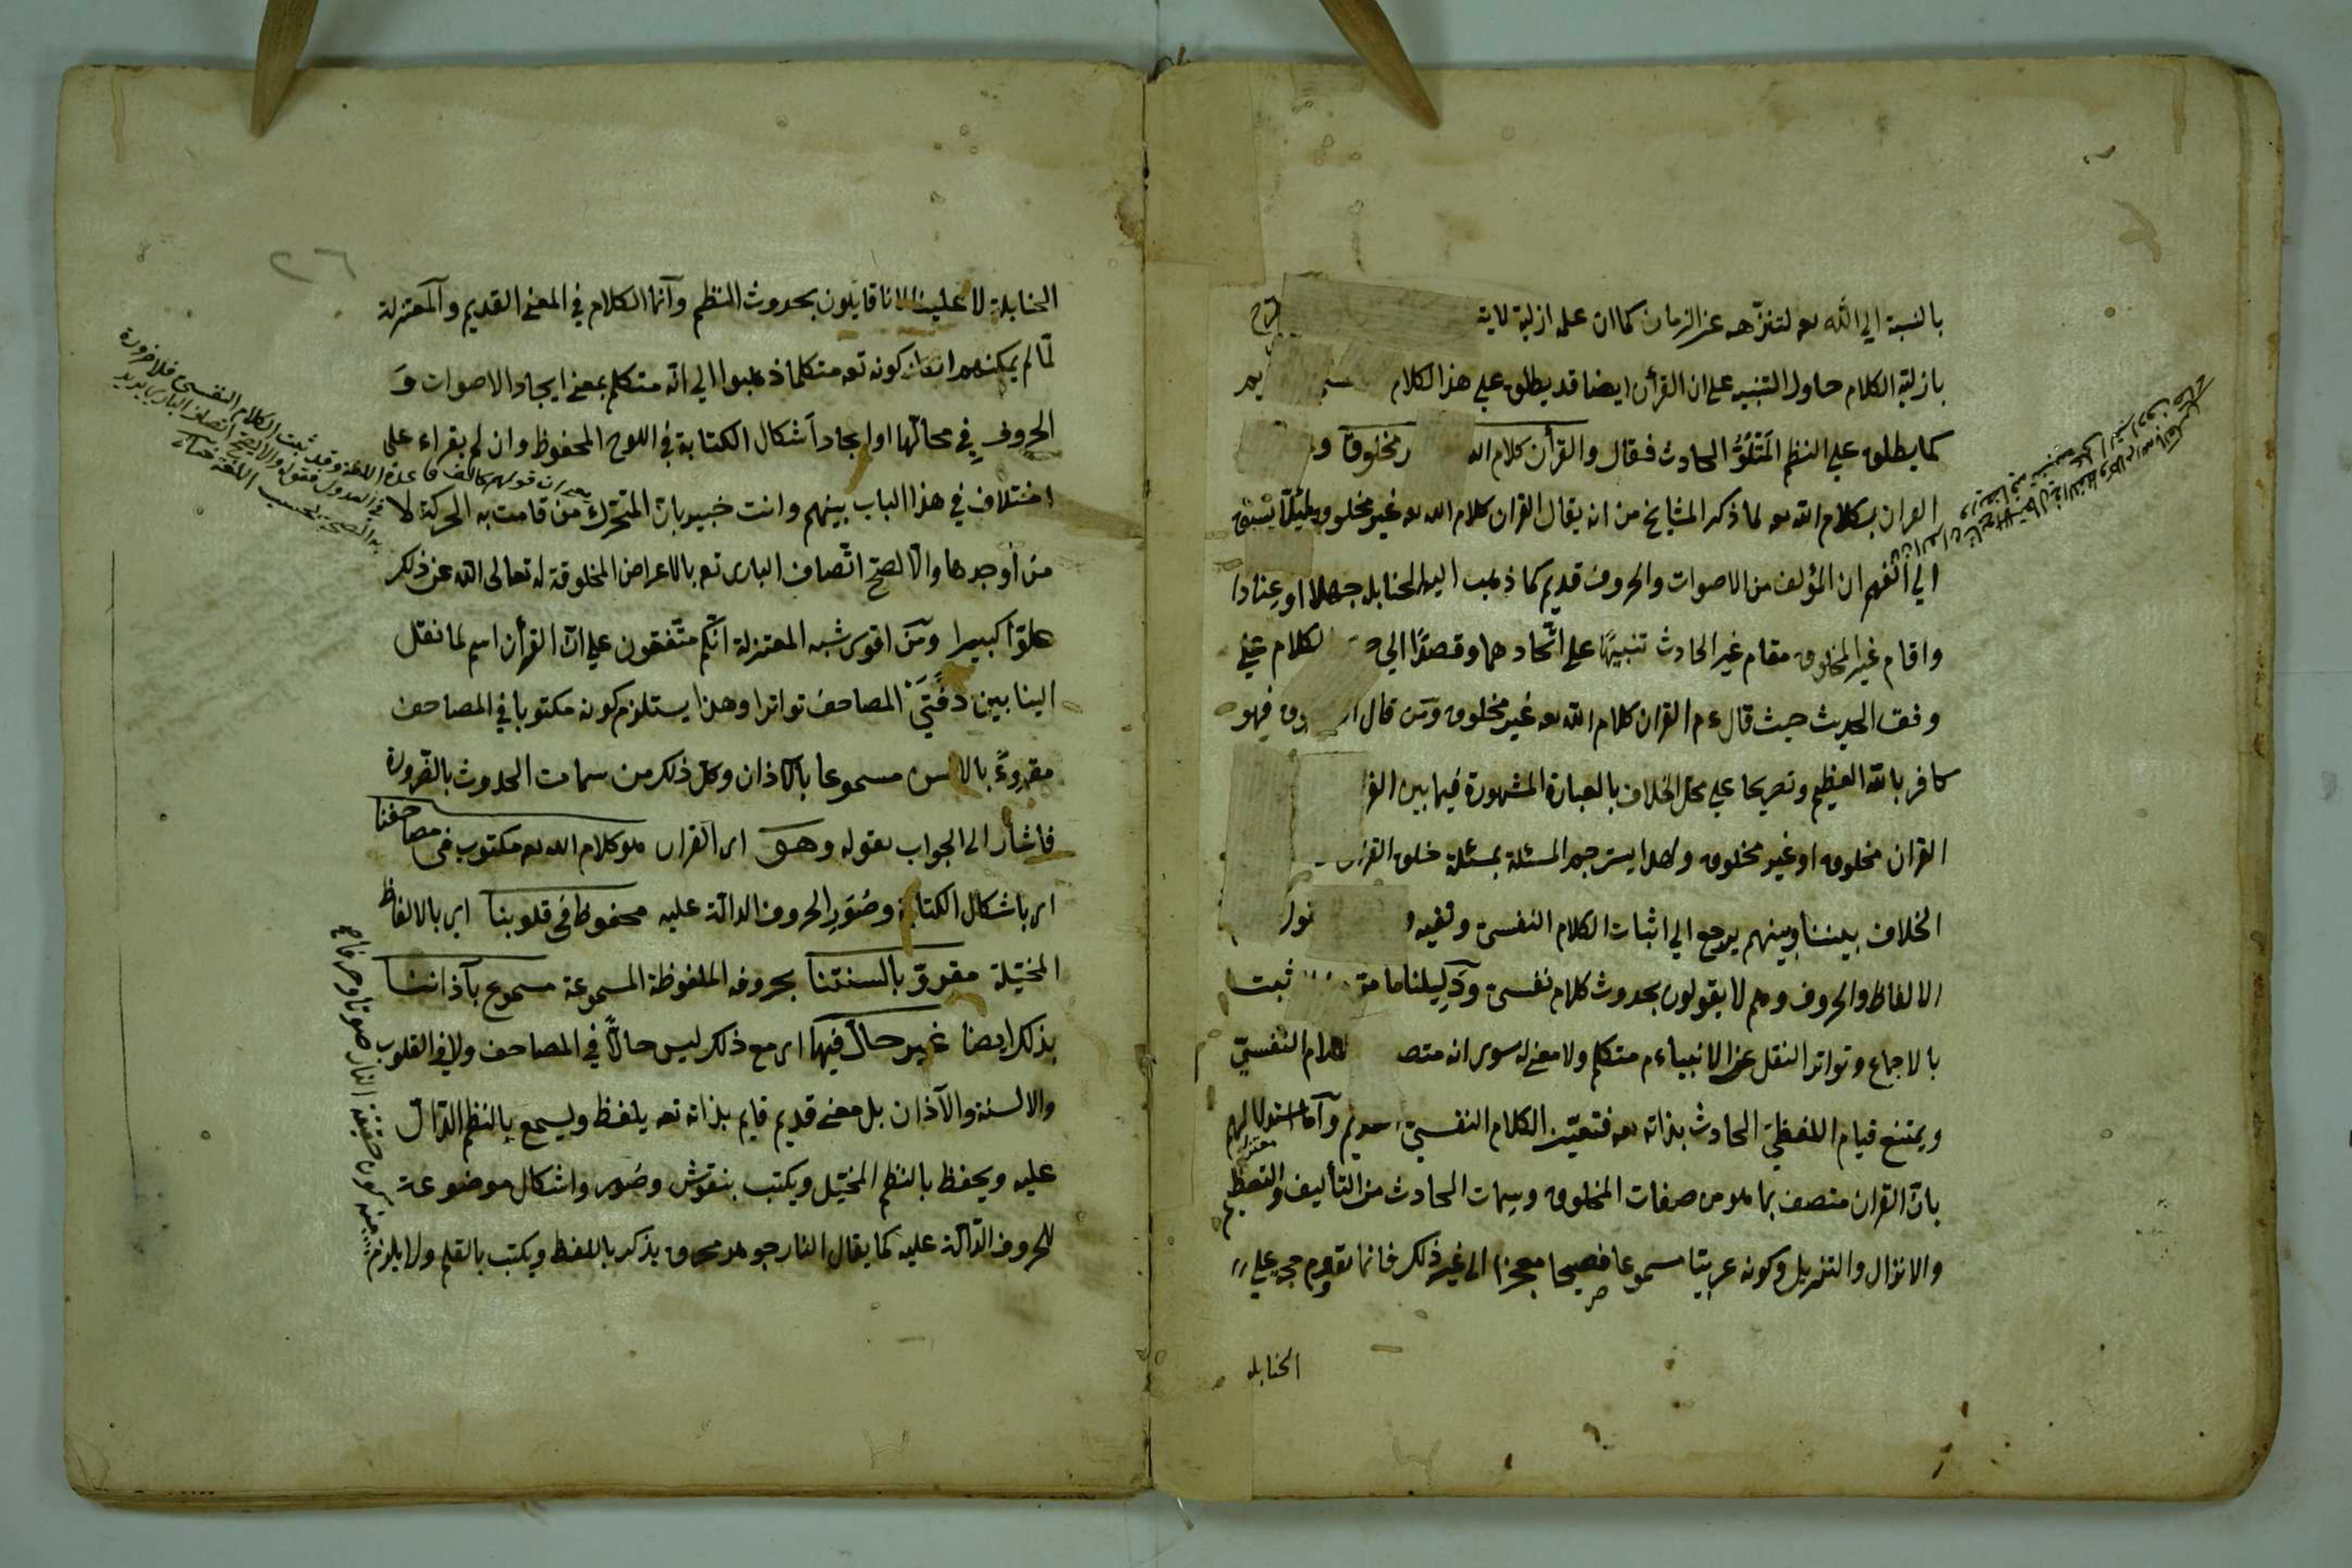 بالنسبة الي الله تع لتنزّهه عن الزمان كما ان علمه ازلية لا يتـ
بازلية الكلام حاول التنبيه علي ان القرأن ايضا قد يطلق علي هذا الكلام
كما يطلق علي النظم المَتْلُوِّ الحادث فقال والقرأن كلام الله مخلوق و
القران بكلام الله تع لما ذكر المشايخ من انه يقال القران كلام الله تع غير مخلوق لئلّا يسبق
الي الفهم ان المؤلف من الاصوات والحروف قديم كما ذهب اليه الحنابلة جهلا او عنادا
واقام غير المخلوق مقام غير الحادث تنبيهًا علي اتّحادهما وقصدًا الي الكلام علي
وفق الحديث حيث قال ءم القران كلام الله تع غير مخلوق ومن قال فهو
كافر بالله العظيم وتصريحا علي محل الخلاف بالعبارة المشهورة فيما بين
القران مخلوق او غير مخلوق ولهذا يترجم المسئلة بمسئلة خلق القران
الخلاف بيننا وبينهم يرجع الي اثبات الكلام النفسيّ ونفيه
الالفاظ والحروف وهم لا يقولون بحدوث كلام نفسيّ ودليلنا ما مرّ ثبت
بالاجماع وتواتر النقل عن الانبياء م متكلم ولا معني له سوي انه متصـ الكلام النفسيّ
ويمتنع قيام اللفظيّ الحادث بذاته تع فتعيّن الكلام النفسيّ القديم وأمّا استدلالهم
بانّ القران متصف بما هو من صفات المخلوق وسمات الحادث من التأليف والتنظيم
والانزال والتنزيل وكونه عربيّا مسموعا فصيحا معجزا الي غير ذلك فانما يقوم حجة علي
الحنابلة
٢٦
الحنابلة لا علينا لانا قايلون بحدوث النظم وانّما الكلام في المعني القديم والمعتزلة
لمّا لم يمكنهم انكار كونه تع متكلما ذهبوا الي انّه متكلم بمعني ايجاد الاصوات و
الحروف في محالّها او ايجاد أشكال الكتابة في اللوح المحفوظ وان لم يقراء علي
اختلاف في هذا الباب بينهم وانت خبير بانّ المتحرّك من قامت به الحركة لا
من أوجدها والّا لصحّ اتّصاف الباري تع بالاعراض المخلوقة له تعالي الله عن ذلك
علوّا كبيرا ومن اقوي شبه المعتزلة انّكم متّفقون علي انّ القرأن اسم لما نقل
الينا بين دفّتَي المصاحف تواترا وهذا يستلزم كونه مكتوبا في المصاحف
مقروءً بالالسن مسموعا بالاذان وكلّ ذلك من سمات الحدوث بالضرورة
فاشار الي الجواب بقوله وهو اي القران هو كلام الله تع مكتوب في مصاحفنا
اي باشكال الكتابة وصُوَرِ الحروف الدالّة عليه محفوظ في قلوبنا اي بالالفاظ
المخيّلة مقروّ بالسنتنا بحروفه الملفوظة المسموعة مسموع بآذاننا
بذلك ايضا غير حالّ فيها اي مع ذلك ليس حالّاً في المصاحف ولا في القلوب
والالسنة والآذان بل معني قديم قايم بذاته تع يلفظ ويسمع بالنظم الدّالّ
عليه ويحفظ بالنظم المخيّل ويكتب بنقوش وصُور واشكال موضوعة
للحروف الدّالّة عليه كما يقال النار جوهر محرق يذكر باللفظ ويكتب بالقلم ولا يلزم
منه كون حقيقة النار صوتا وحرفا